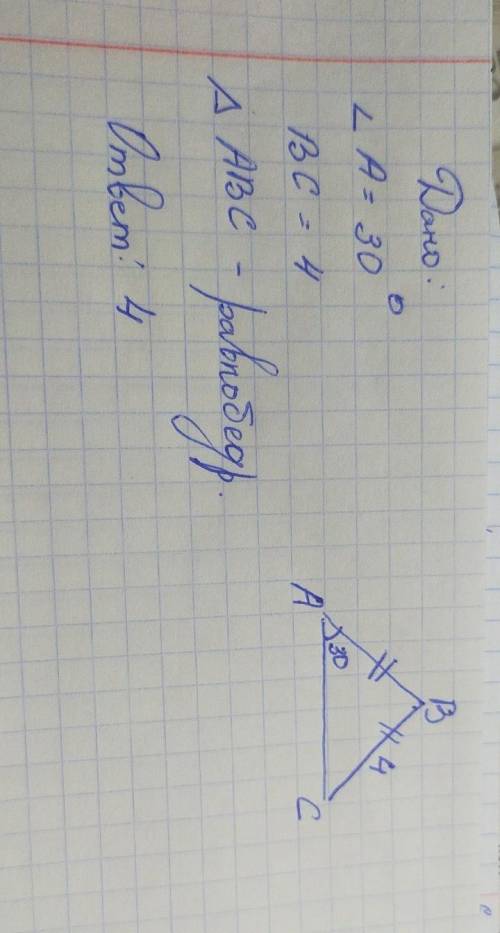 Дано:
∠ A = 30°
BC = 4
Δ ABC - равнобедр.
Ответ: 4
B
4
30
A
C